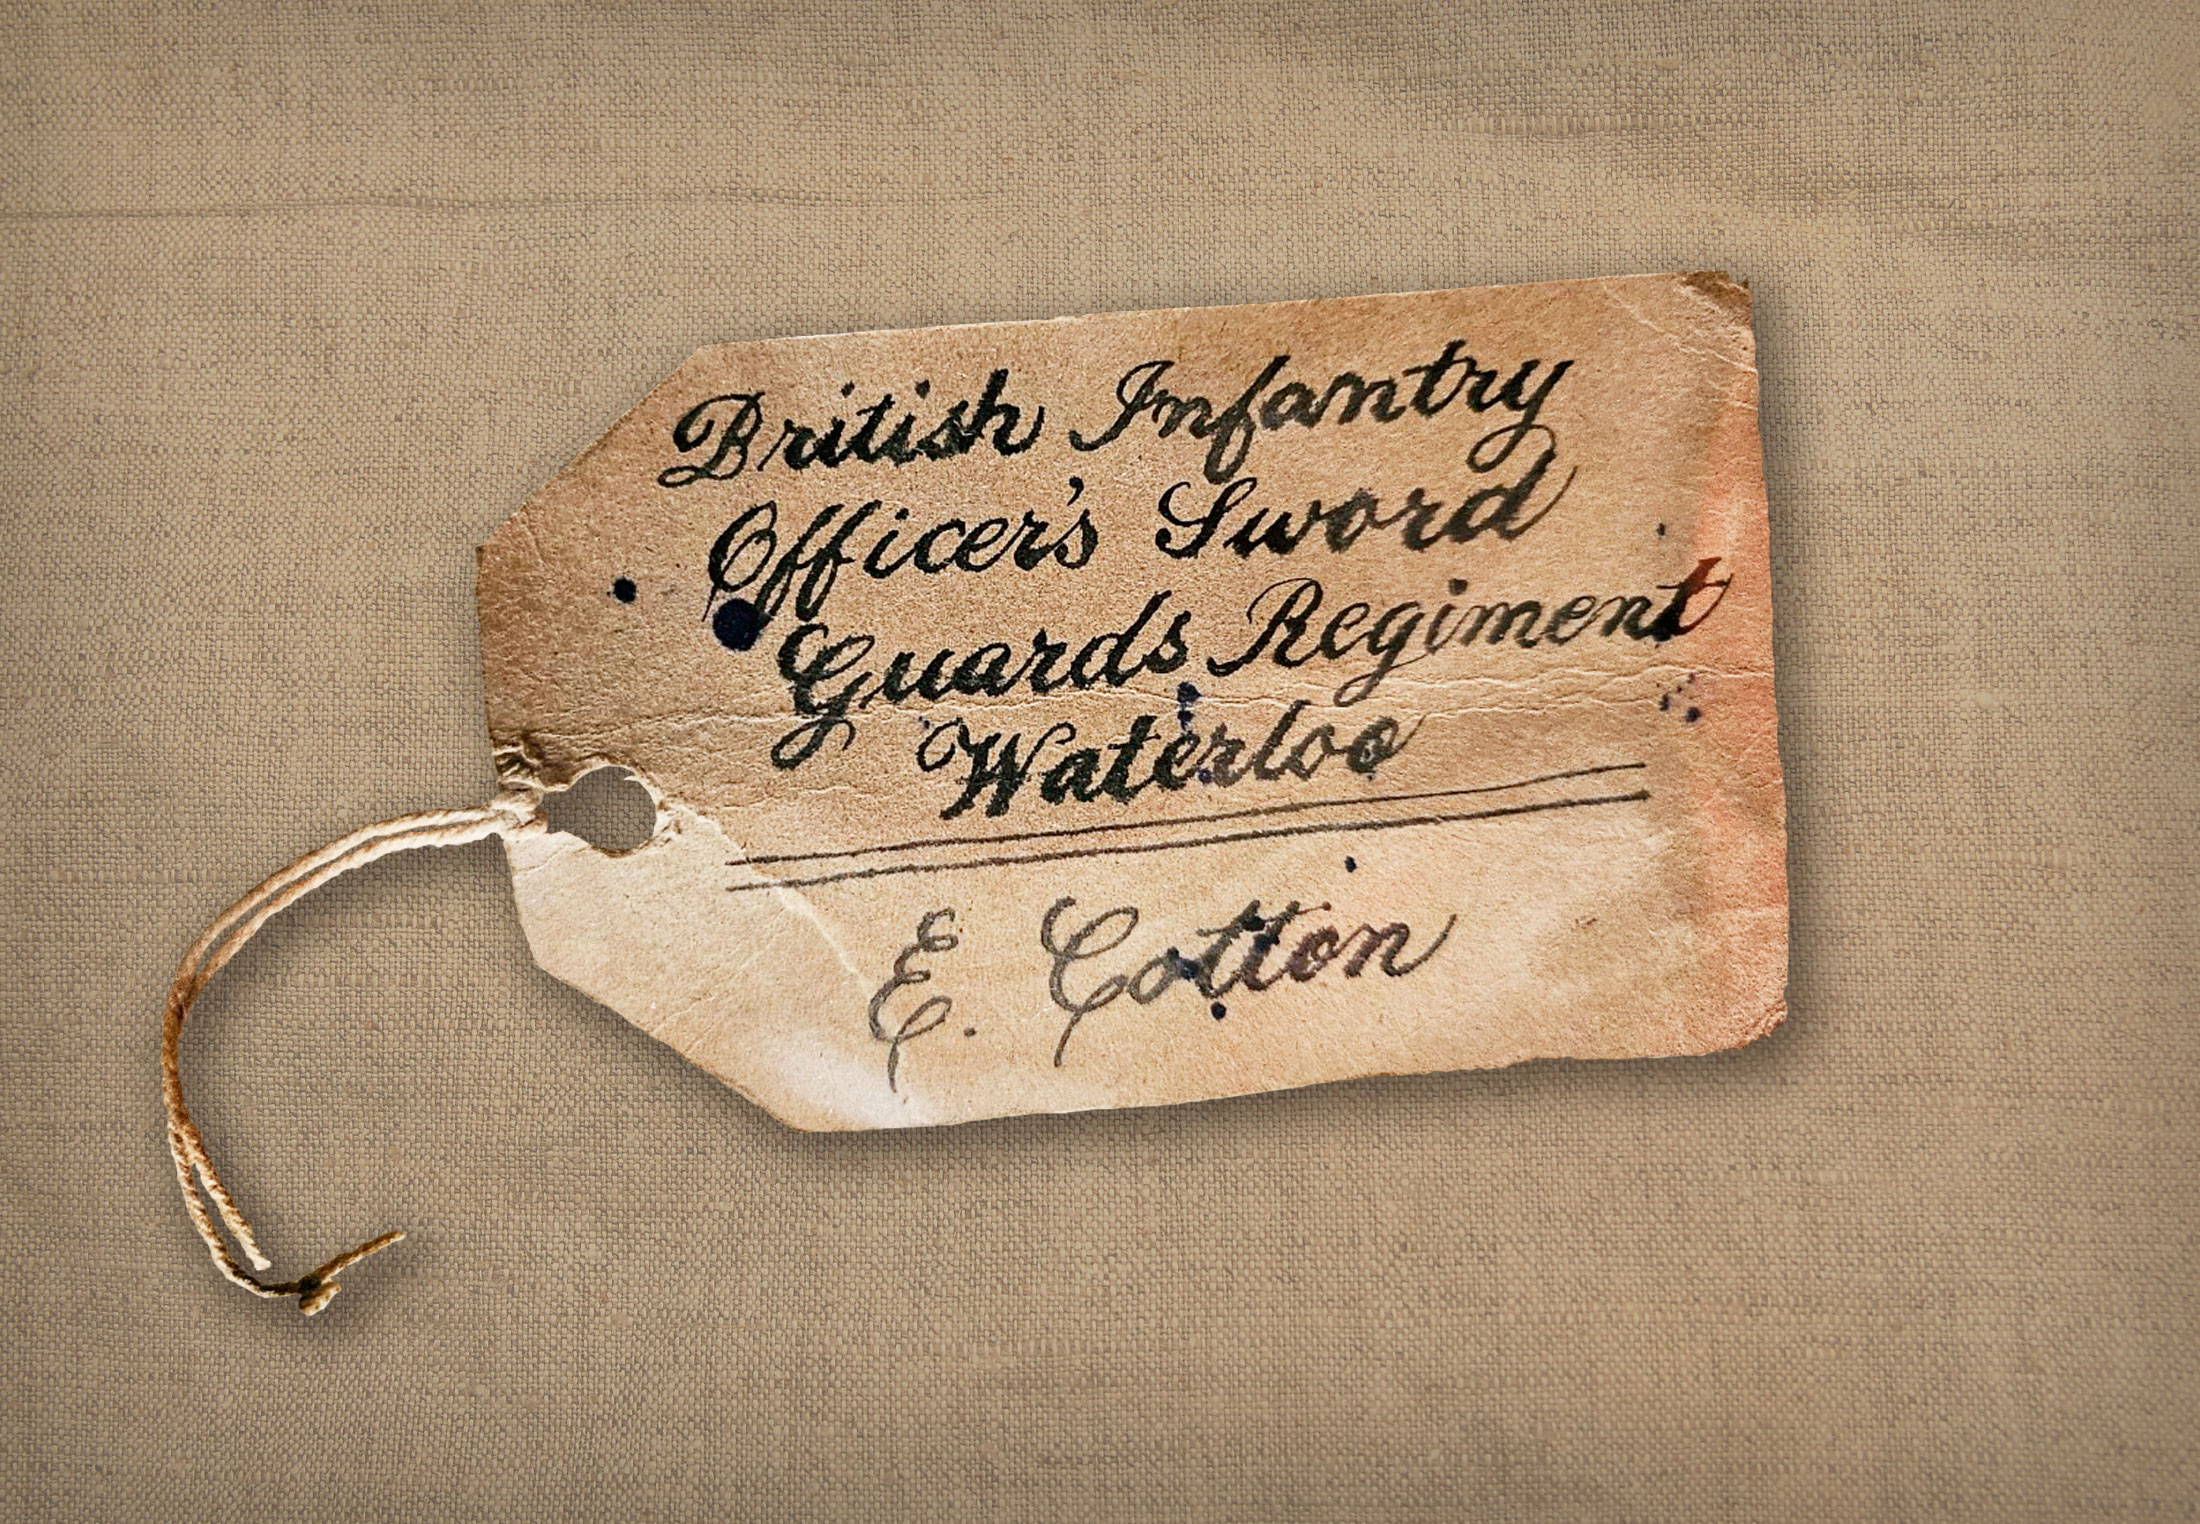 British Infantry
Officer's Sword
Guards Regiment
Waterloo
E. Cotton